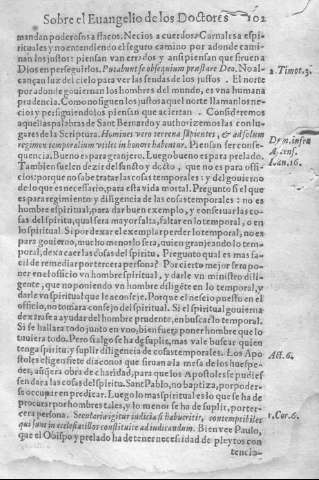 Sobre el Euangelio de los Doctores 102
mandan poderosos a flacos. Necios a cuerdos: Carnales a espi-
rituales y no entendiendo el seguro camino por adonde cami-
nan los justos: piensan van errados y ansi piensan que siruen a
Dios en perseguirlos. Putabunt se obsequium prestare Deo. No al-
cançan luz del cielo para ver las sendas de los justos. El norte
por adonde gouiernan los hombres del mundo, es vna humana
prudencia. Como no siguen los justos aquel norte llaman los ne-
cios y persiguiendolos piensan que aciertan. Consideremos
aquellas palabras de Sant Bernardo y authorizemos las con lu-
gares de la Scriptura. Homines vero terrena sapientes, & ad solum
regimen temporalium vtiles in honore habentur. Piensan ser conse-
quencia. Bueno es para granjero. Luego bueno es para prelado.
Tambien suelen dezir del sancto y docto, que no es para offi-
cios: porque no sabe tratar las cosas temporales: y del gouierno
de lo que es necessario, para esta vida mortal. Pregunto si el que
es para regimiento y diligencia de las cosas temporales: no es
hombre espiritual, para dar buen exemplo, y conseruar las co-
sas del spiritu, qual sera mayor falta, faltar en lo temporal, o en
lo spiritual. Si por dexar el exemplar perder lo temporal; no es
para gouierno, mucho menor lo sera, quien granjeando lo tem-
poral, dexa caer las cosas del spiritu. Pregunto qual es mas fa-
cil de remediar por tercera persona? Por cierto mejor sera po-
ner en el officio vn hombre spiritual, y darle vn ministro dili-
gente, que no poniendo vn hombre diligēte en lo temporal, y
darle vn spiritual que le aconseje. Porque el nescio puesto en el
officio, no tomara consejo del spiritual. Si el spiritual gouierna
dexarse a ayudar del hombre prudente, en buscar lo temporal.
Si se hallara todo junto en vno, bien fuera poner hombre que lo
tuuiera todo. Pero si algo se ha de suplir, mas vale buscar quien
tenga spiritu, y suplir diligencia de cosas temporales. Los Apo-
stoles eligen siete diaconos que siruan a la mesa de los huespe-
des, assi para obra de charidad, para que los Apostoles se pudies
sen dar a las cosas del spiritu. Sant Pablo, no baptiza, por poder-
se occupar en predicar. Luego lo mas spiritual es lo que se ha de
procurar por hombres tales, y lo menor se ha de suplir, por ter-
cera persona. Secularia igitur iudicia si habueritis, contemptibiles
qui sunt in ecclesia illos constituite ad iudicandum. Bien vee Paulo,
que el Obispo y prelado ha de tener necesidad de pleytos con
tencio-
2. Timot. 3.
Act. 6.
1. Cor. 6.